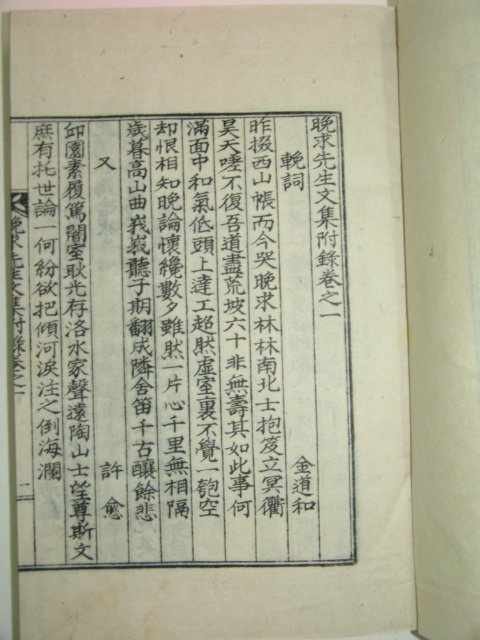 晚求先生文集附錄卷之一
輓詞 金道和
昨掇西山帳而今哭晚求林林南北士抱笈立冥衢
昊天喳不復吾道盡荒坡六十非無壽其如此事何
滿面中和氣低頭上達工超然虛室裏不覺一瓢空
却恨相知晚論懷纔數夕雖然一片心千里無相隔
歲暮高山曲峩峩聽子期翻成隣舍笛千古釀餘悲
又 許愈
邱園素履篤闇室耿光存洛水家聲遠陶山士望尊斯文
庶有托世論一何紛欲把傾河淚注之倒海瀾
晚求先生文集附錄卷之一 一